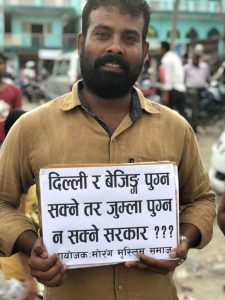 दिल्ली र बेजिङ्ग पुग्न
सक्ने तर जुम्ला पुग्न
न सक्ने सरकार ???
आयोजक: मोरंग मुस्लिम समाज